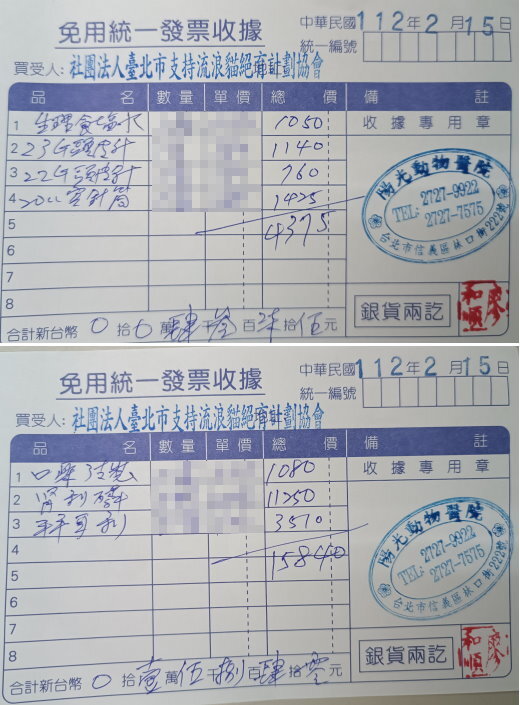 免用統一發票收據
中華民國112年2月15日
統一編號
買受人:社團法人臺北市支持流浪貓絕育計劃協會
品名 數量 單價 總價 備註
1 生理食鹽水 1050 收據專用章
2 23G頭皮針 1140
3 22G頭皮針 760
4 20cc空針筒 1425
5 4375
6
7
8
陽光動物醫院
TEL: 2727-9922
2727-7575
台北市信義區林口街222號
銀貨兩訖
廖和順
合計新台幣 0 拾 0 萬 肆 千 參 百 柒 拾 伍 元
免用統一發票收據
中華民國112年2月15日
統一編號
買受人:社團法人臺北市支持流浪貓絕育計劃協會
品名 數量 單價 總價 備註
1 1080 收據專用章
2 11250
3 3510
4 15840
5
6
7
8
陽光動物醫院
TEL: 2727-9922
2727-7575
台北市信義區林口街222號
銀貨兩訖
廖和順
合計新台幣 0 拾 壹 萬 伍 千 捌 百 肆 拾 零 元